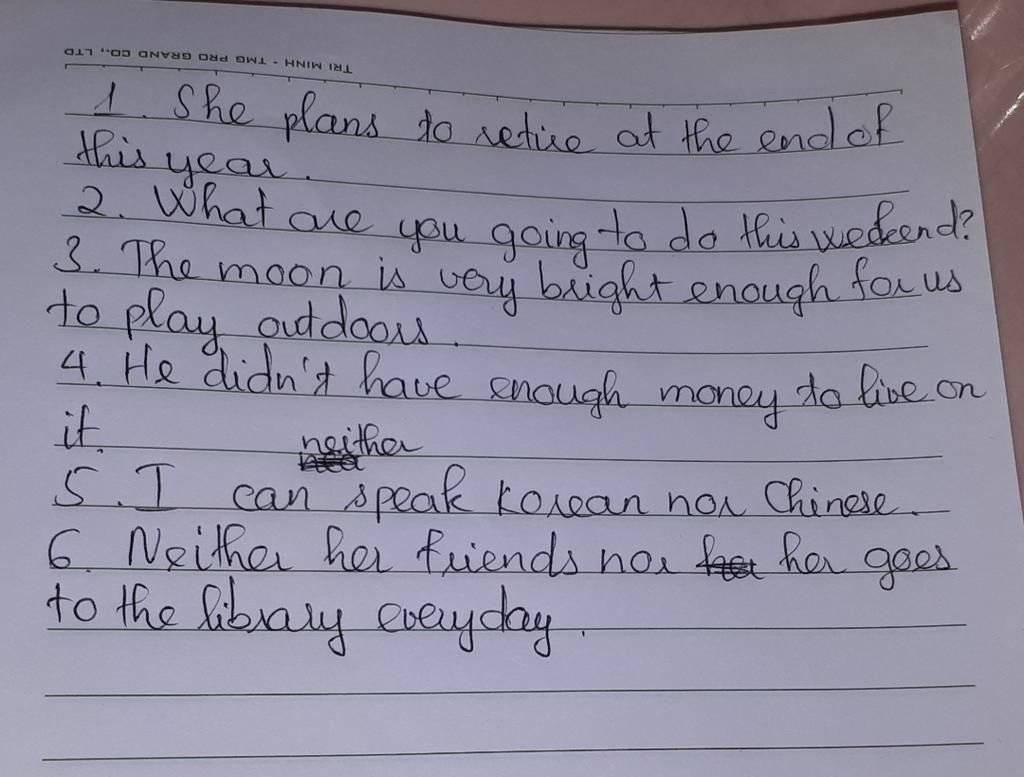 TRI MINH - TMG PRO GRAND CO., LTD
1. She plans to retire at the end of
this year.
2. What are you going to do this weekend?
3. The moon is very bright enough for us
to play outdoors.
4. He didn't have enough money to live on
it.
neither
5. I can speak Korean nor Chinese.
6. Neither her friends nor her goes
to the library everyday.